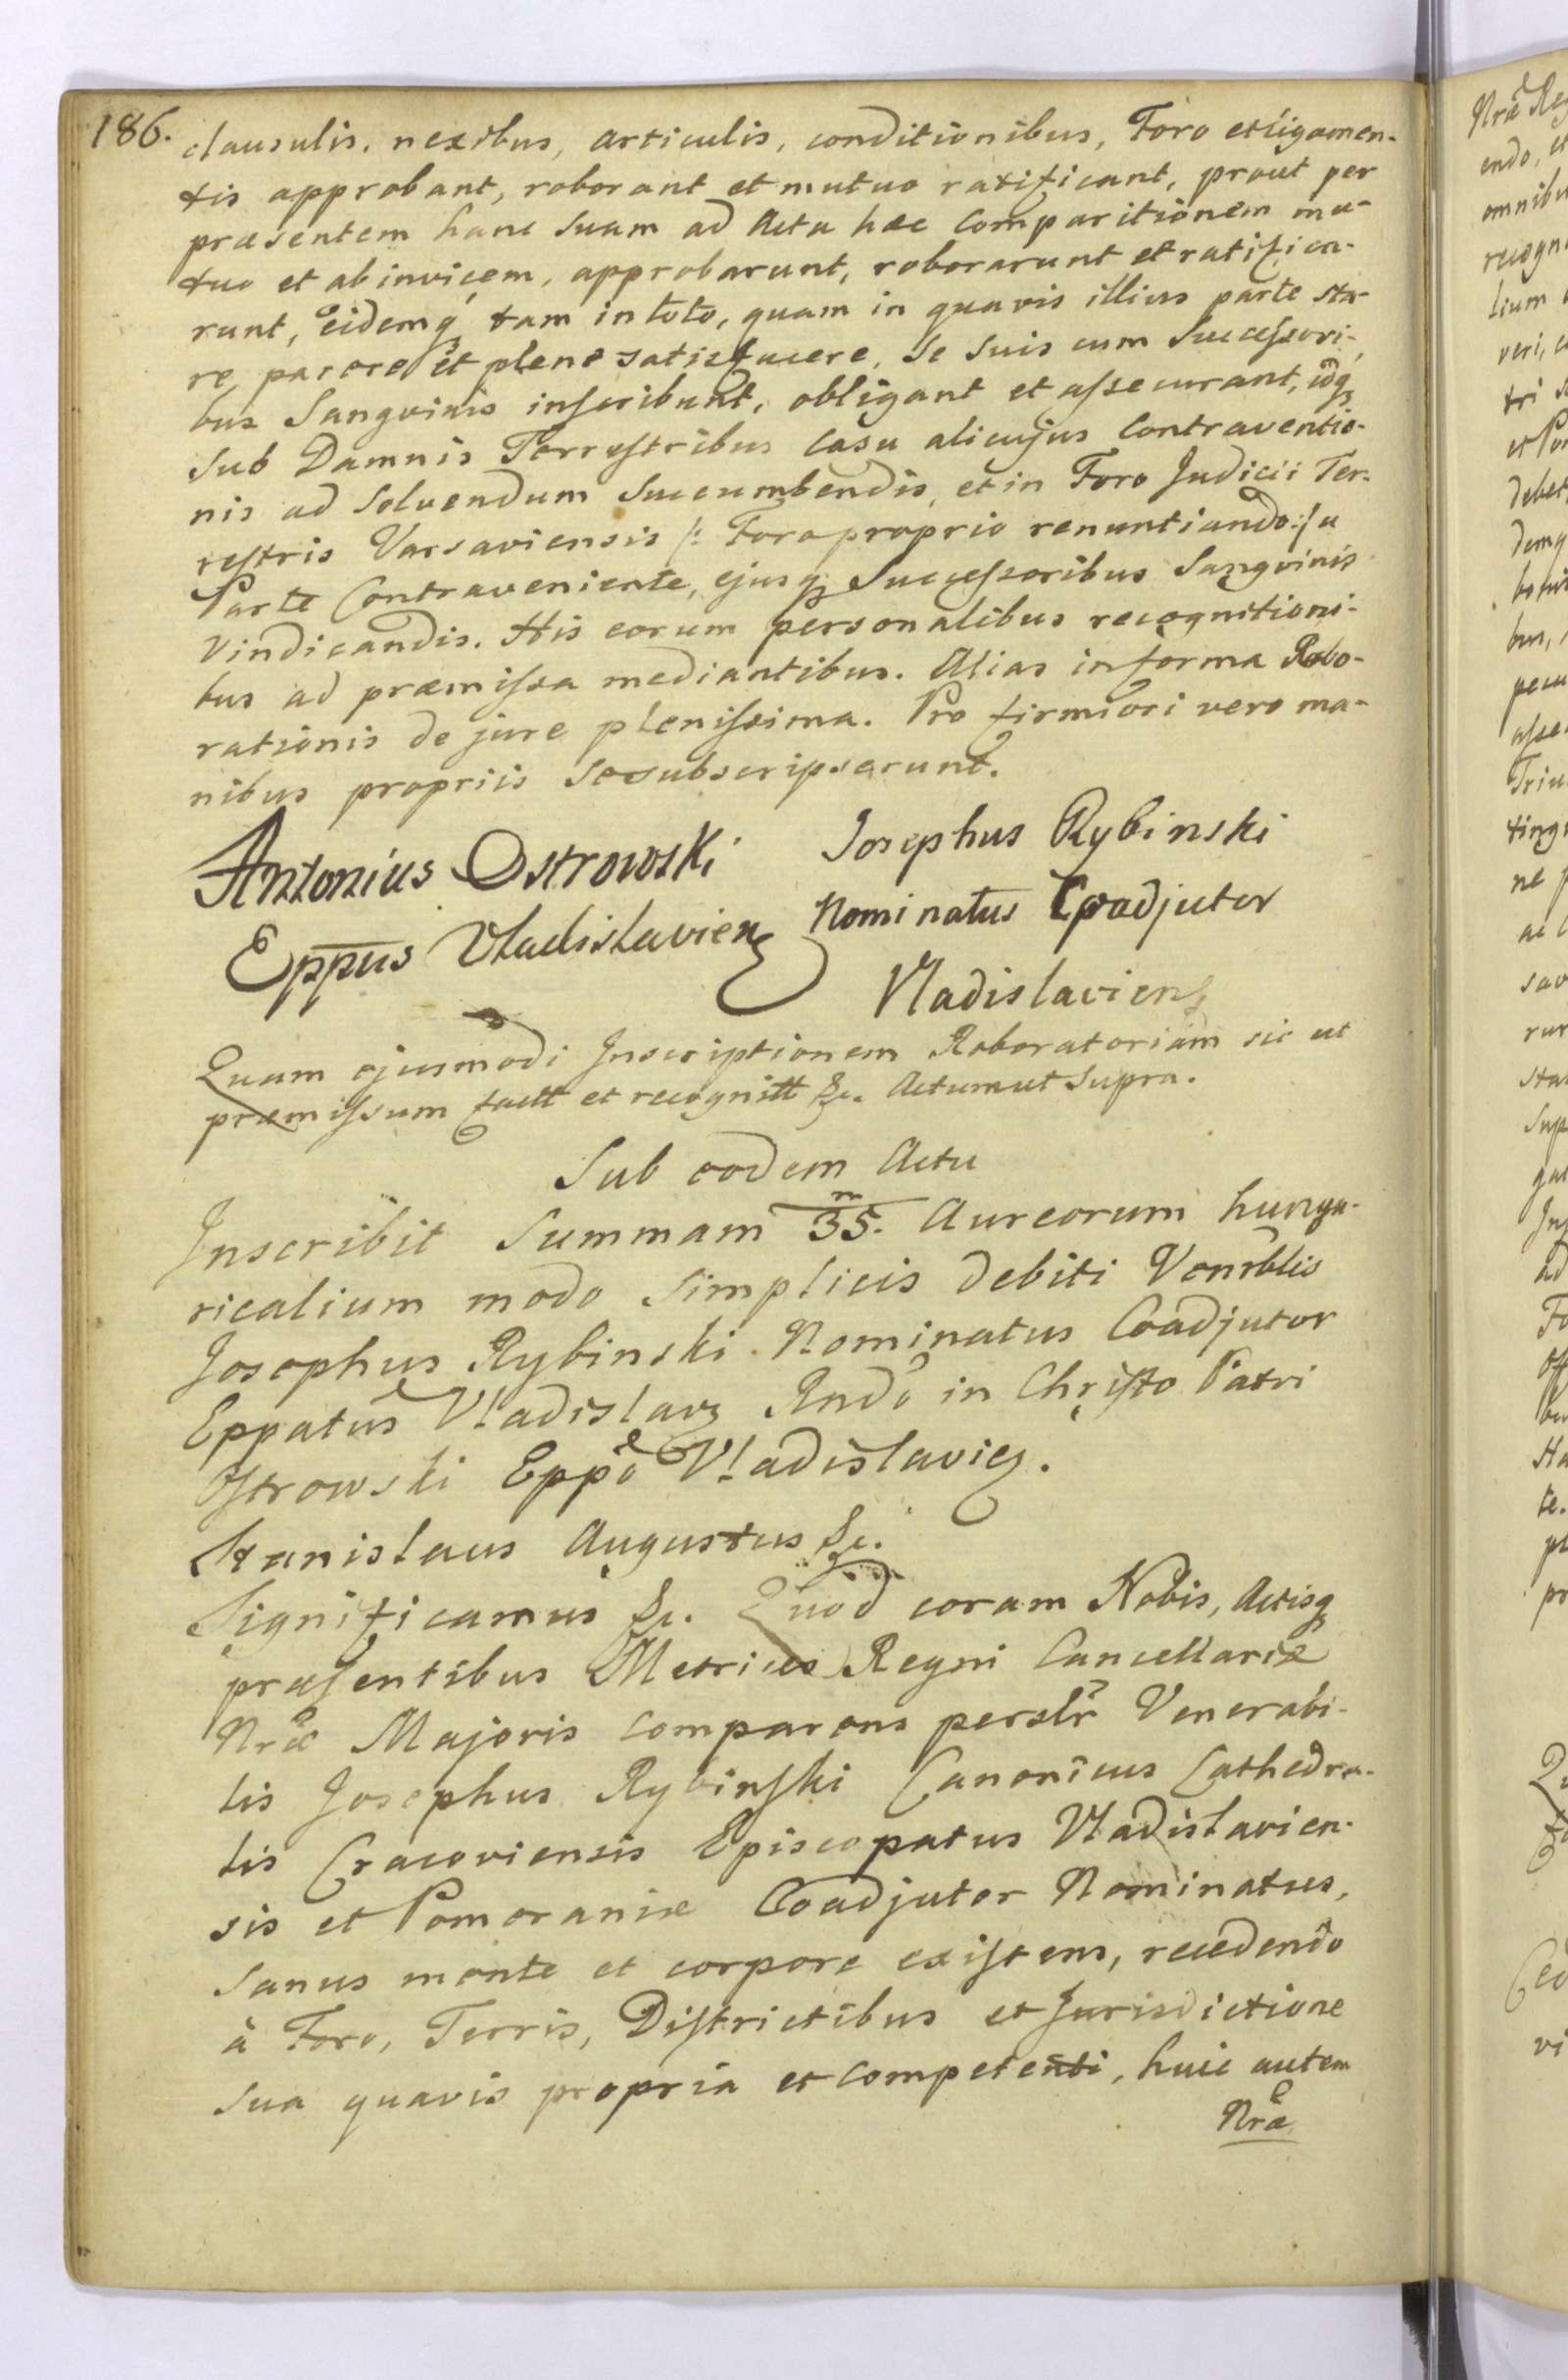 186.
clausulis, nexibus, articulis, conditionibus, Foro et ligamen-
tis approbant, roborant et mutuo ratificant, prout per
præsentem hanc suam ad Acta hæc Comparitionem mu-
tuo et ab invicem, approbarunt, roborarunt et ratifica-
runt, Eidemq́ tam in toto, quam in quavis illius parte sta-
re, parere et plene satisfacere, Se Suis cum Succeſsori-
bus Sangvinis inscribunt, obligant et aſsecurant, idq́
Sub Damnis Terreſtribus Casu alicujus Contraventio-
nis ad Solvendum Succumbendis, et in Foro Judicii Ter-
reſtris Varsaviensis /: Foro proprio renuntiando :/ a
Parte Contraveniente, ejusq́ Succeſsoribus Sangvinis
Vindicandis. His eorum personalibus recognitioni-
bus ad præmiſsa mediantibus. Alias in forma Robo-
rationis de jure pleniſsima. Pro firmiori vero ma-
nibus propriis Se subscripserunt.
Antonius Ostrowski
Eppus Vladislavien
Josephus Rybinski
Nominatus Coadjutor
Vladislaviens
Quam ejusmodi Inscriptionem Roboratoriam sic ut
præmiſsum factt et recognitt &c. Actum ut Supra.
Sub eodem Actu
Inscribit Summam 35.m Aureorum hunga-
ricalium modo Simplicis debiti Venrblis
Josephus Rybinski Nominatus Coadjutor
Eppatus Vladislav Rndo in Chriſto Patri
Oſtrowski Eppo Vladislavien.
Stanislaus Augustus &c.
Significamus &c. Quod coram Nobis, Actisq́
præſentibus Metrices Regni Cancellariæ
Nræ Majoris Comparens persler Venerabi-
lis Josephus Rybinſki Canonicus Cathedra-
lis Cracoviensis Episcopatus Vladislavien-
sis et Pomeraniæ Coadjutor Nominatus,
Sanus mente et corpore exiſtens, recedendo
à Foro, Terris, Diſtrictibus et Jurisdictione
Sua quavis propria et Competenti, huic autem
Nræ